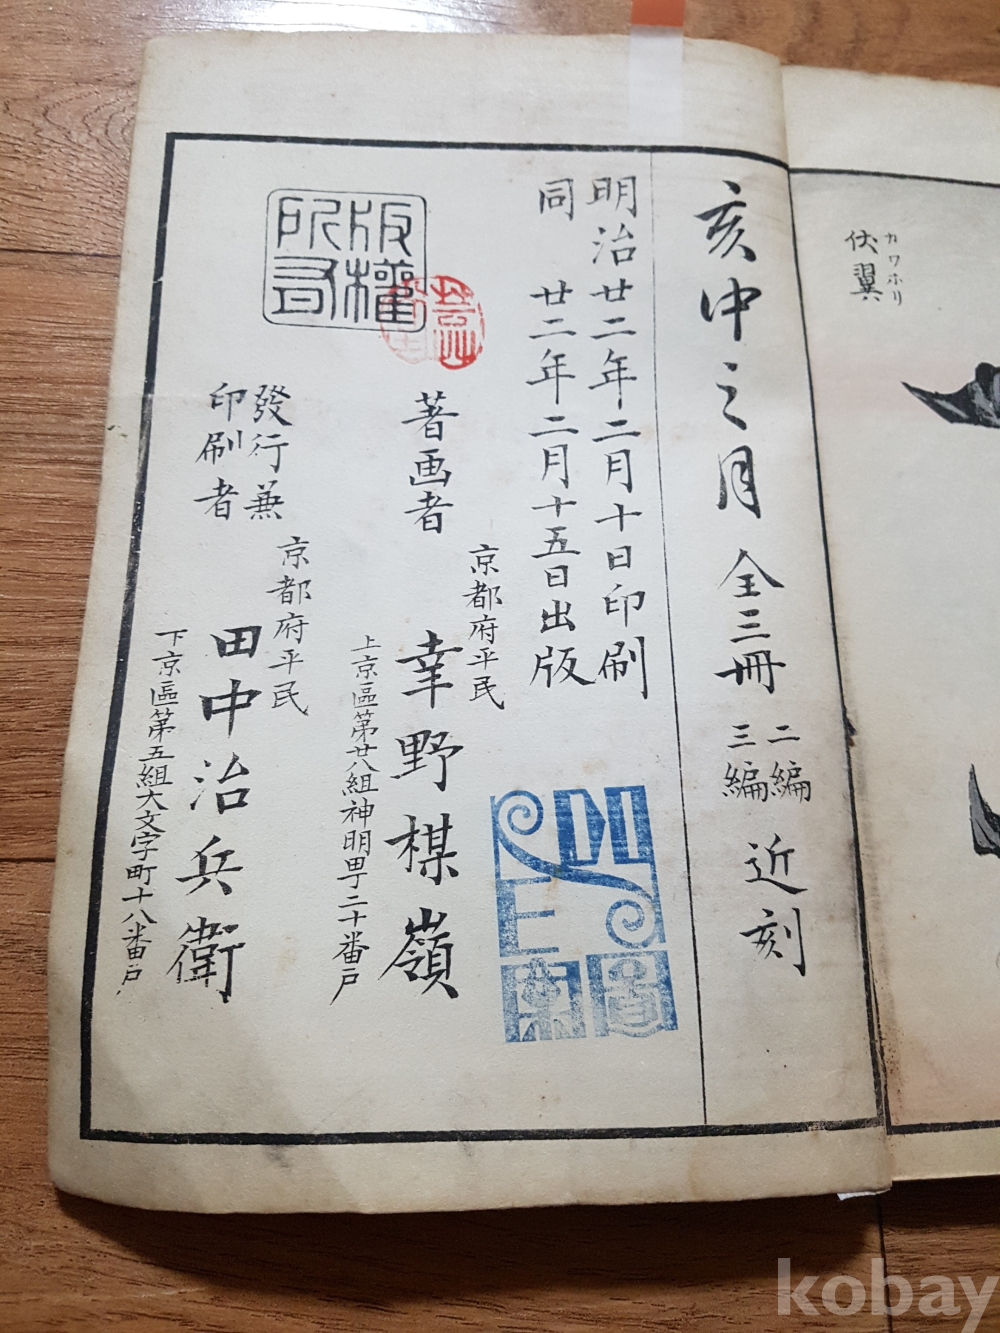 カワホリ
伏翼
亥中之月 全三冊 二編 三編 近刻
明治廿二年二月十日印刷
同 廿二年二月十五日出版
版權所有
著画者
京都府平民
幸野楳嶺
上京區第廿八組神明町二十番戸
發行兼
印刷者
京都府平民
田中治兵衛
下京區第五組大文字町十八番戸
kobay